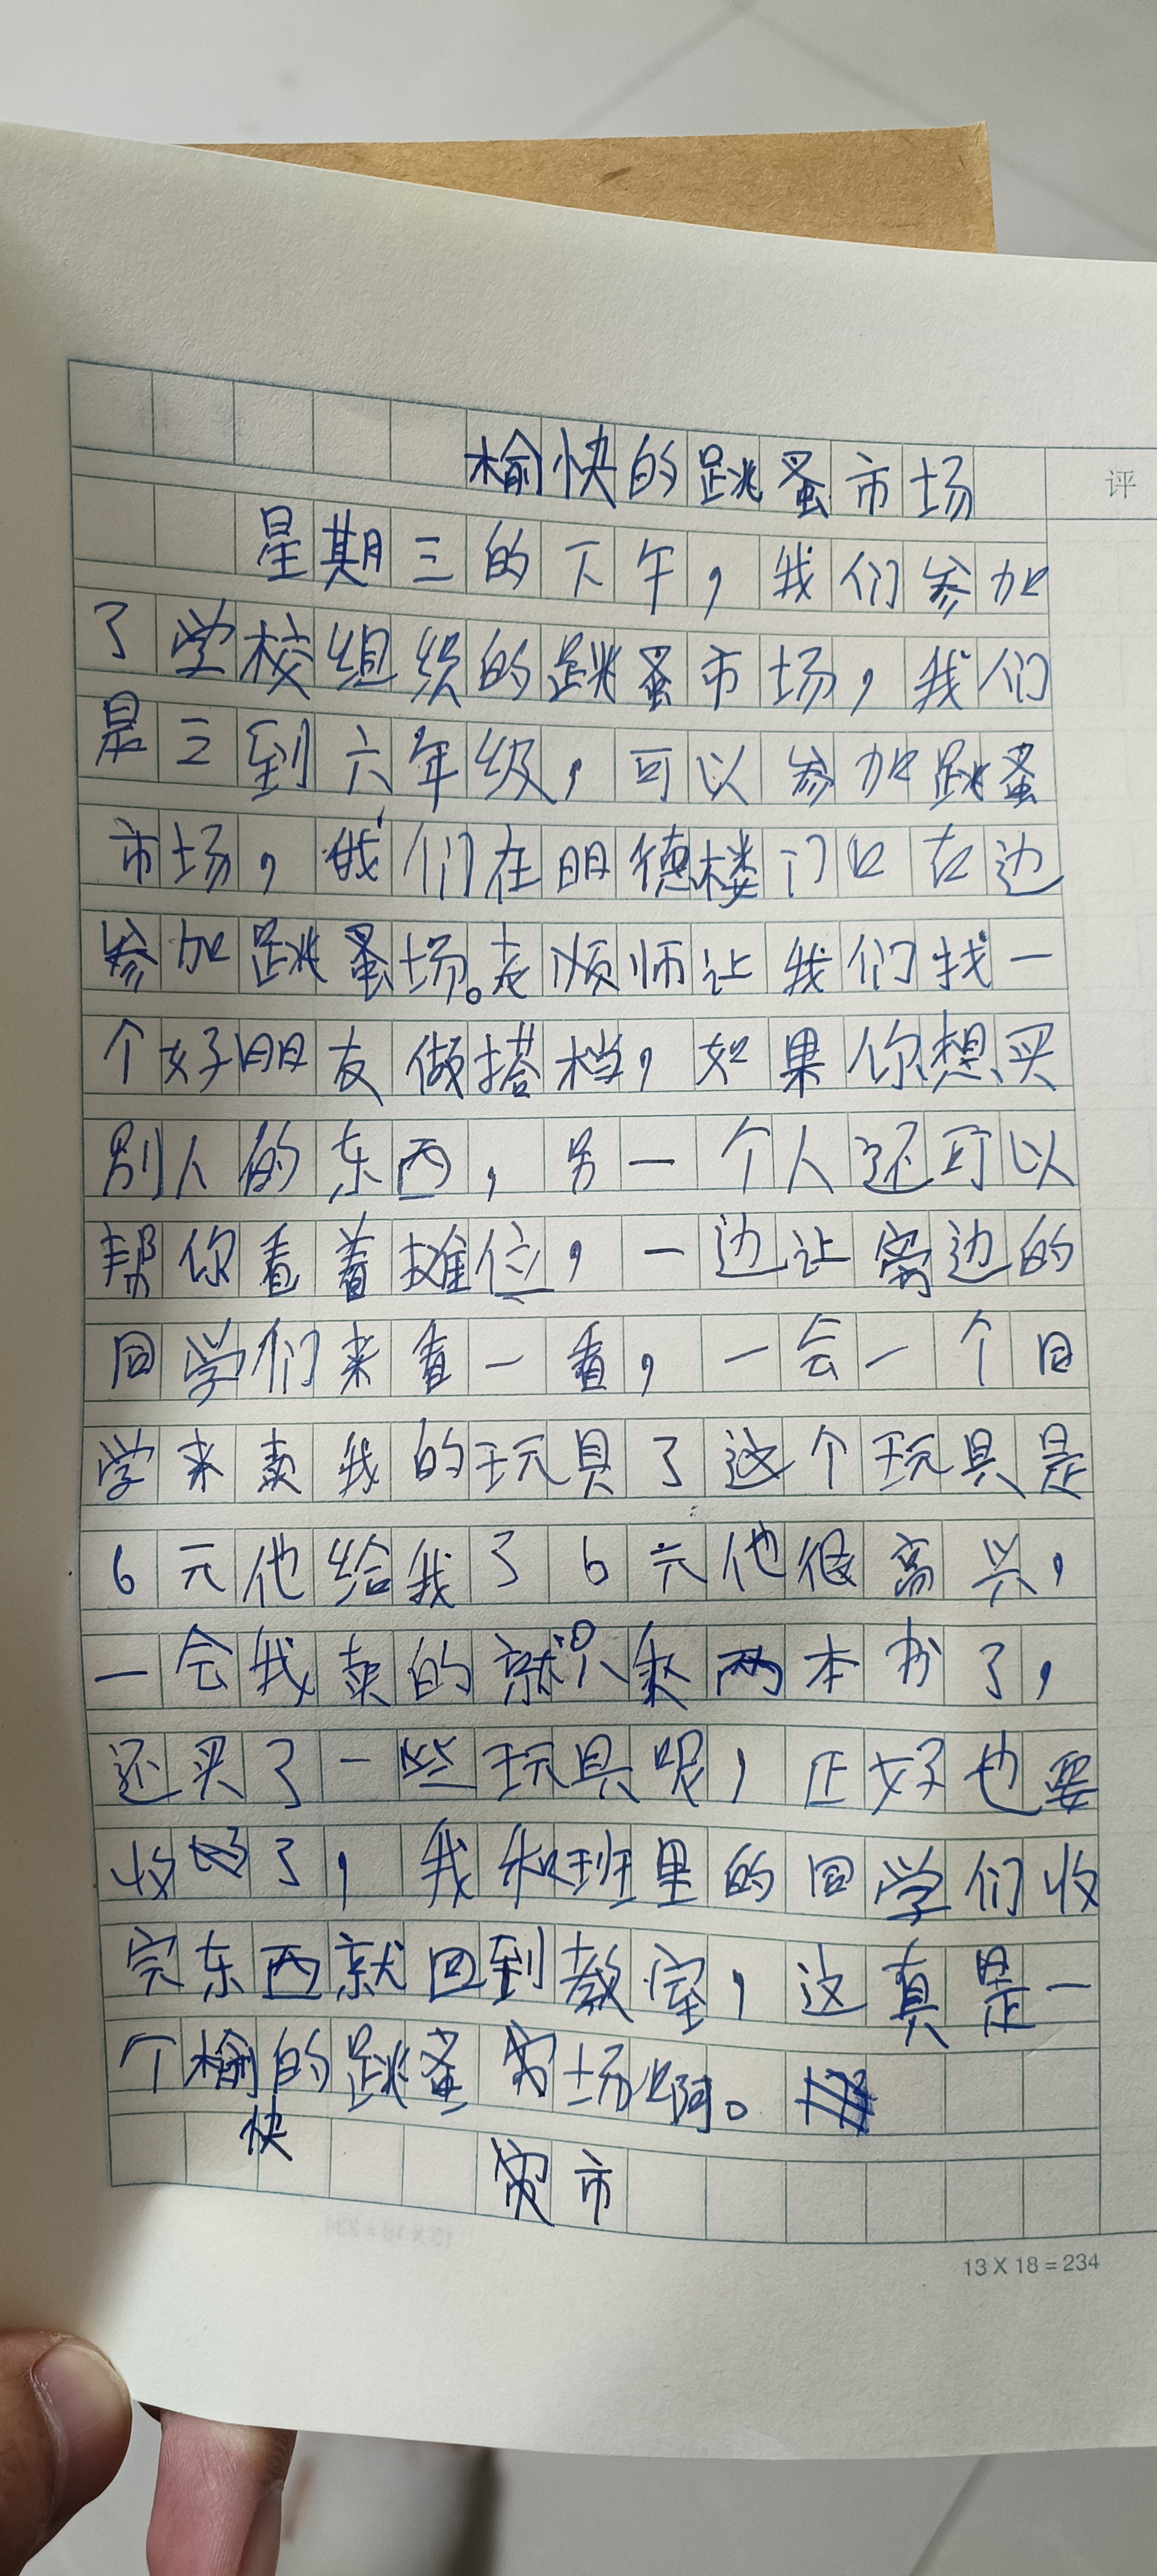 榆快的跳蚤市场
评
星期三的下午，我们参加
了学校组织的跳蚤市场，我们
是三到六年级，可以参加跳蚤
市场，我们在明德楼门口右边
参加跳蚤场。老师让我们找一
个好朋友做搭档，如果你想买
别人的东西，另一个人还可以
帮你看着摊位，一边让旁边的
同学们来看一看，一会一个同
学来卖我的玩具了这个玩具是
6元他给我了6元他很高兴，
一会我卖的就只剩两本书了，
还买了一些玩具呢，正好也要
收了，我和班里的同学们收
完东西就回到教室，这真是一
个榆的跳蚤市场啊。
快
市
13 X 18 = 234